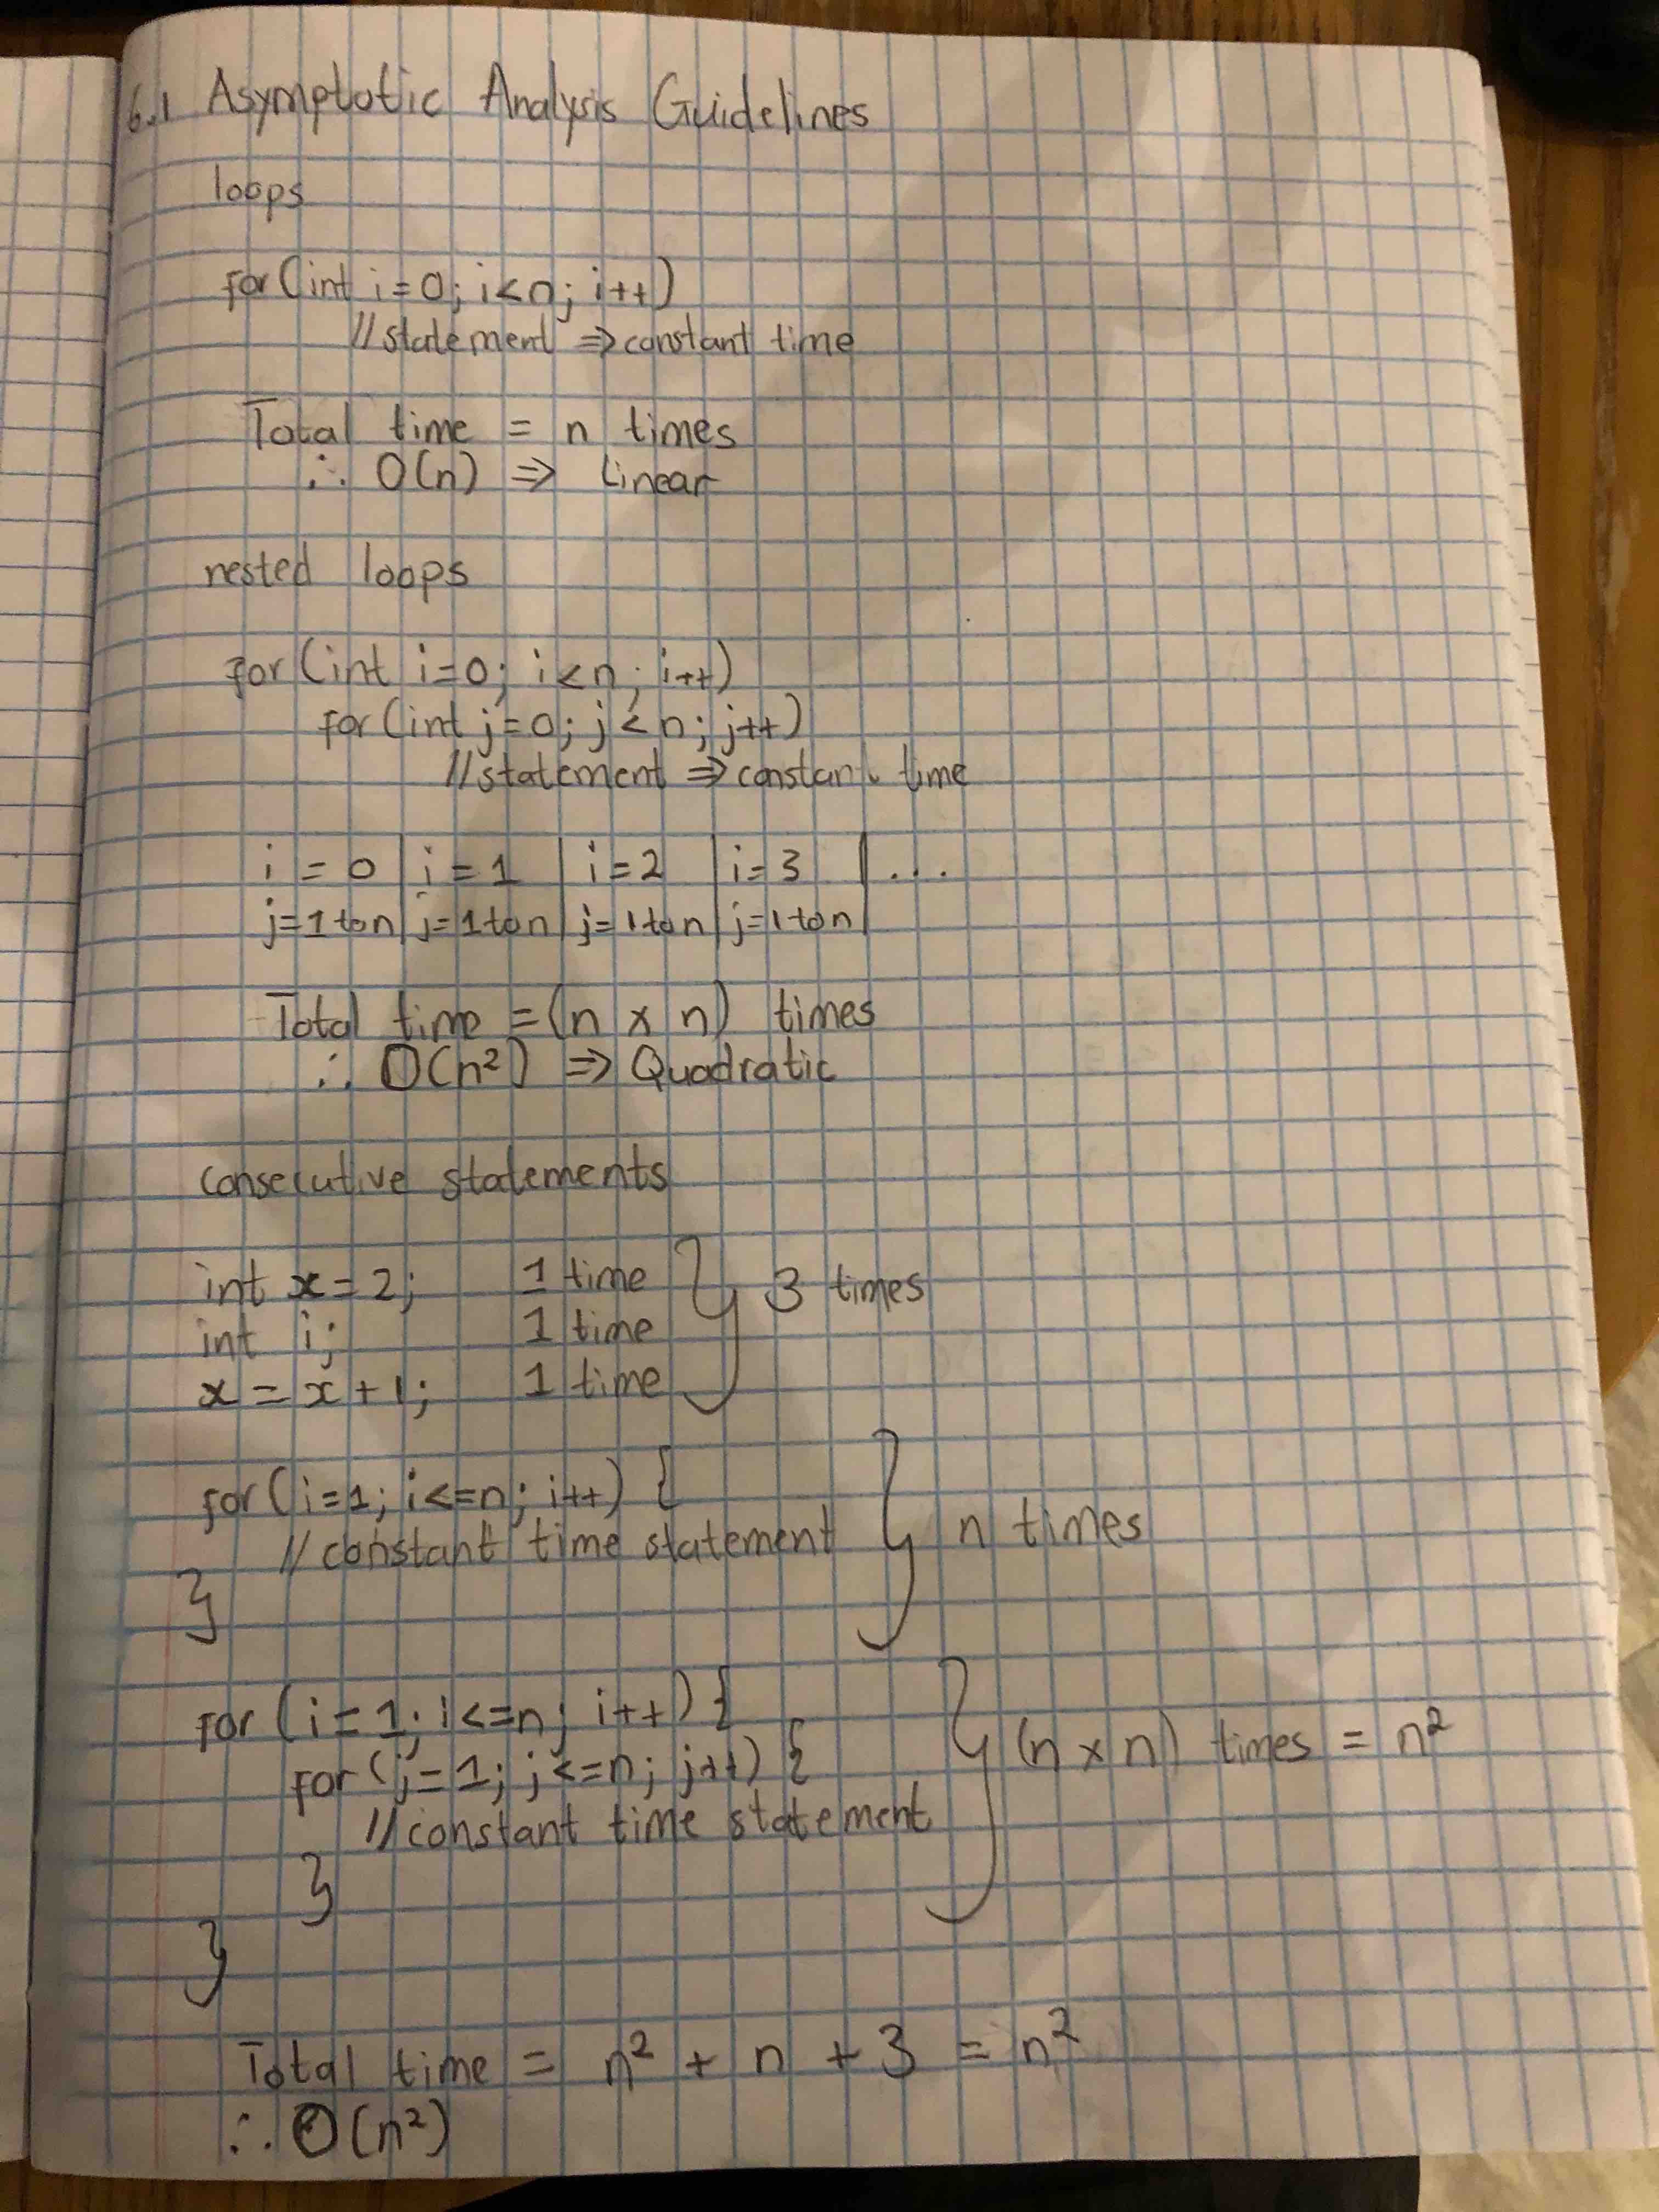 6.1 Asymptotic Analysis Guidelines
loops
for(int i=0; i<n; i++)
//statement ⇒ constant time
Total time = n times
∴ O(n) ⇒ Linear
nested loops
for(int i=0; i<n; i++)
for(int j=0; j<n; j++)
//statement ⇒ constant time
i=0 | i=1 | i=2 | i=3 | ...
j=1 to n | j=1 to n | j=1 to n | j=1 to n |
Total time = (n x n) times
∴ O(n²) ⇒ Quadratic
consecutive statements
int x=2; 1 time } 3 times
int i; 1 time
x = x+1; 1 time
for(i=1; i<=n; i++) {
//constant time statement } n times
}
for(i=1; i<=n; i++) {
for(j=1; j<=n; j++) { } (n x n) times = n²
//constant time statement
}
}
Total time = n² + n + 3 = n²
∴ O(n²)